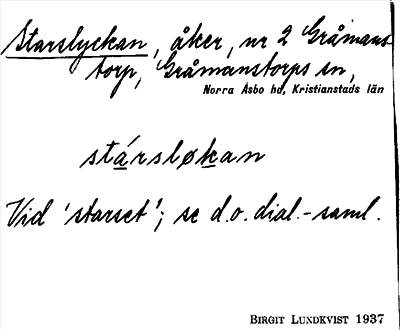 Starslyckan, åker, nr 2 Gråmans-
torp, Gråmanstorps sn,
Norra Åsbo hd, Kristianstads län
stársløkan
Vid 'starset'; se d.o. dial.-saml.
BIRGIT LUNDKVIST 1937